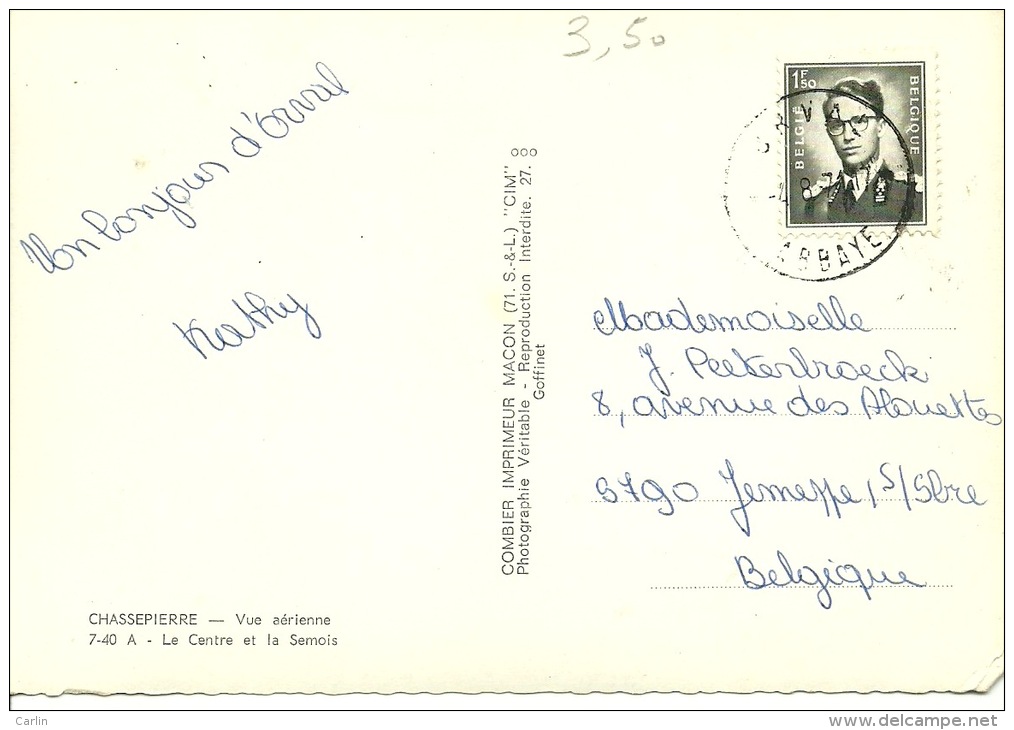 3,50
1F50
BELGIË
BELGIQUE
ORVAL
-4.8.71
ABBAYE
Mon bonjour d'Orval
Kathy
COMBIER IMPRIMEUR MACON (71. S.-&-L.) "CIM"
Photographie Véritable - Reproduction Interdite. 27. ooo
Goffinet
Mademoiselle
J. Peeterbroeck
8, avenue des Alouettes
5790 Jemeppe s/Sbre
Belgique
CHASSEPIERRE — Vue aérienne
7-40 A - Le Centre et la Semois
Carlin
www.delcampe.net